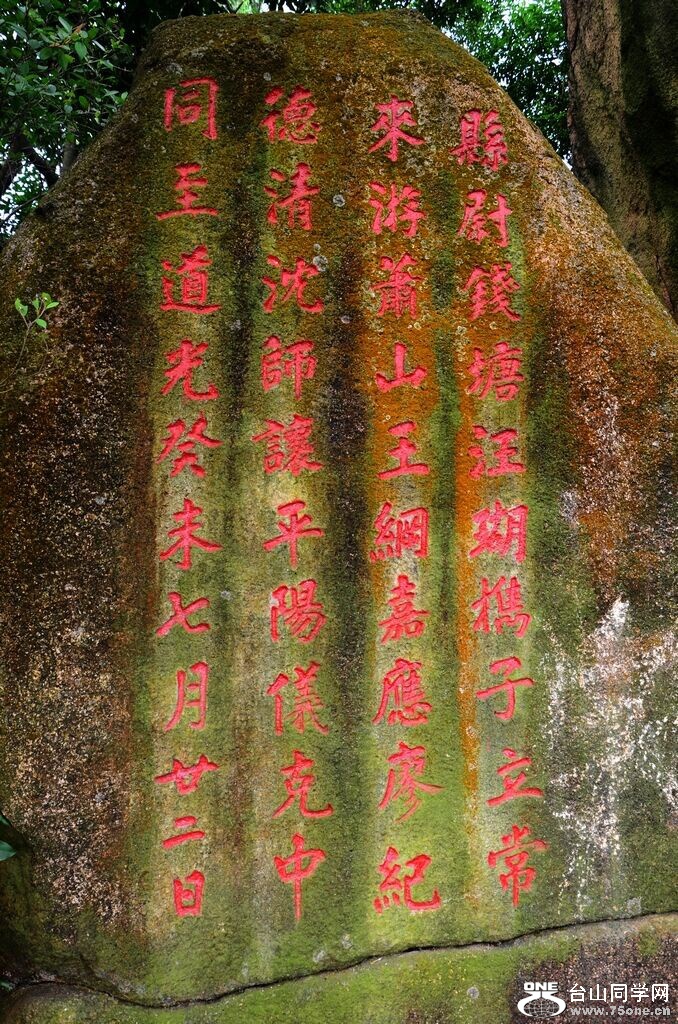 縣尉錢塘汪瑚攜子立常
來游蕭山王綱嘉應廖紀
德清沈師讓平陽儀克中
同至道光癸未七月廿二日
ONE
台山同学网
www.75one.cn